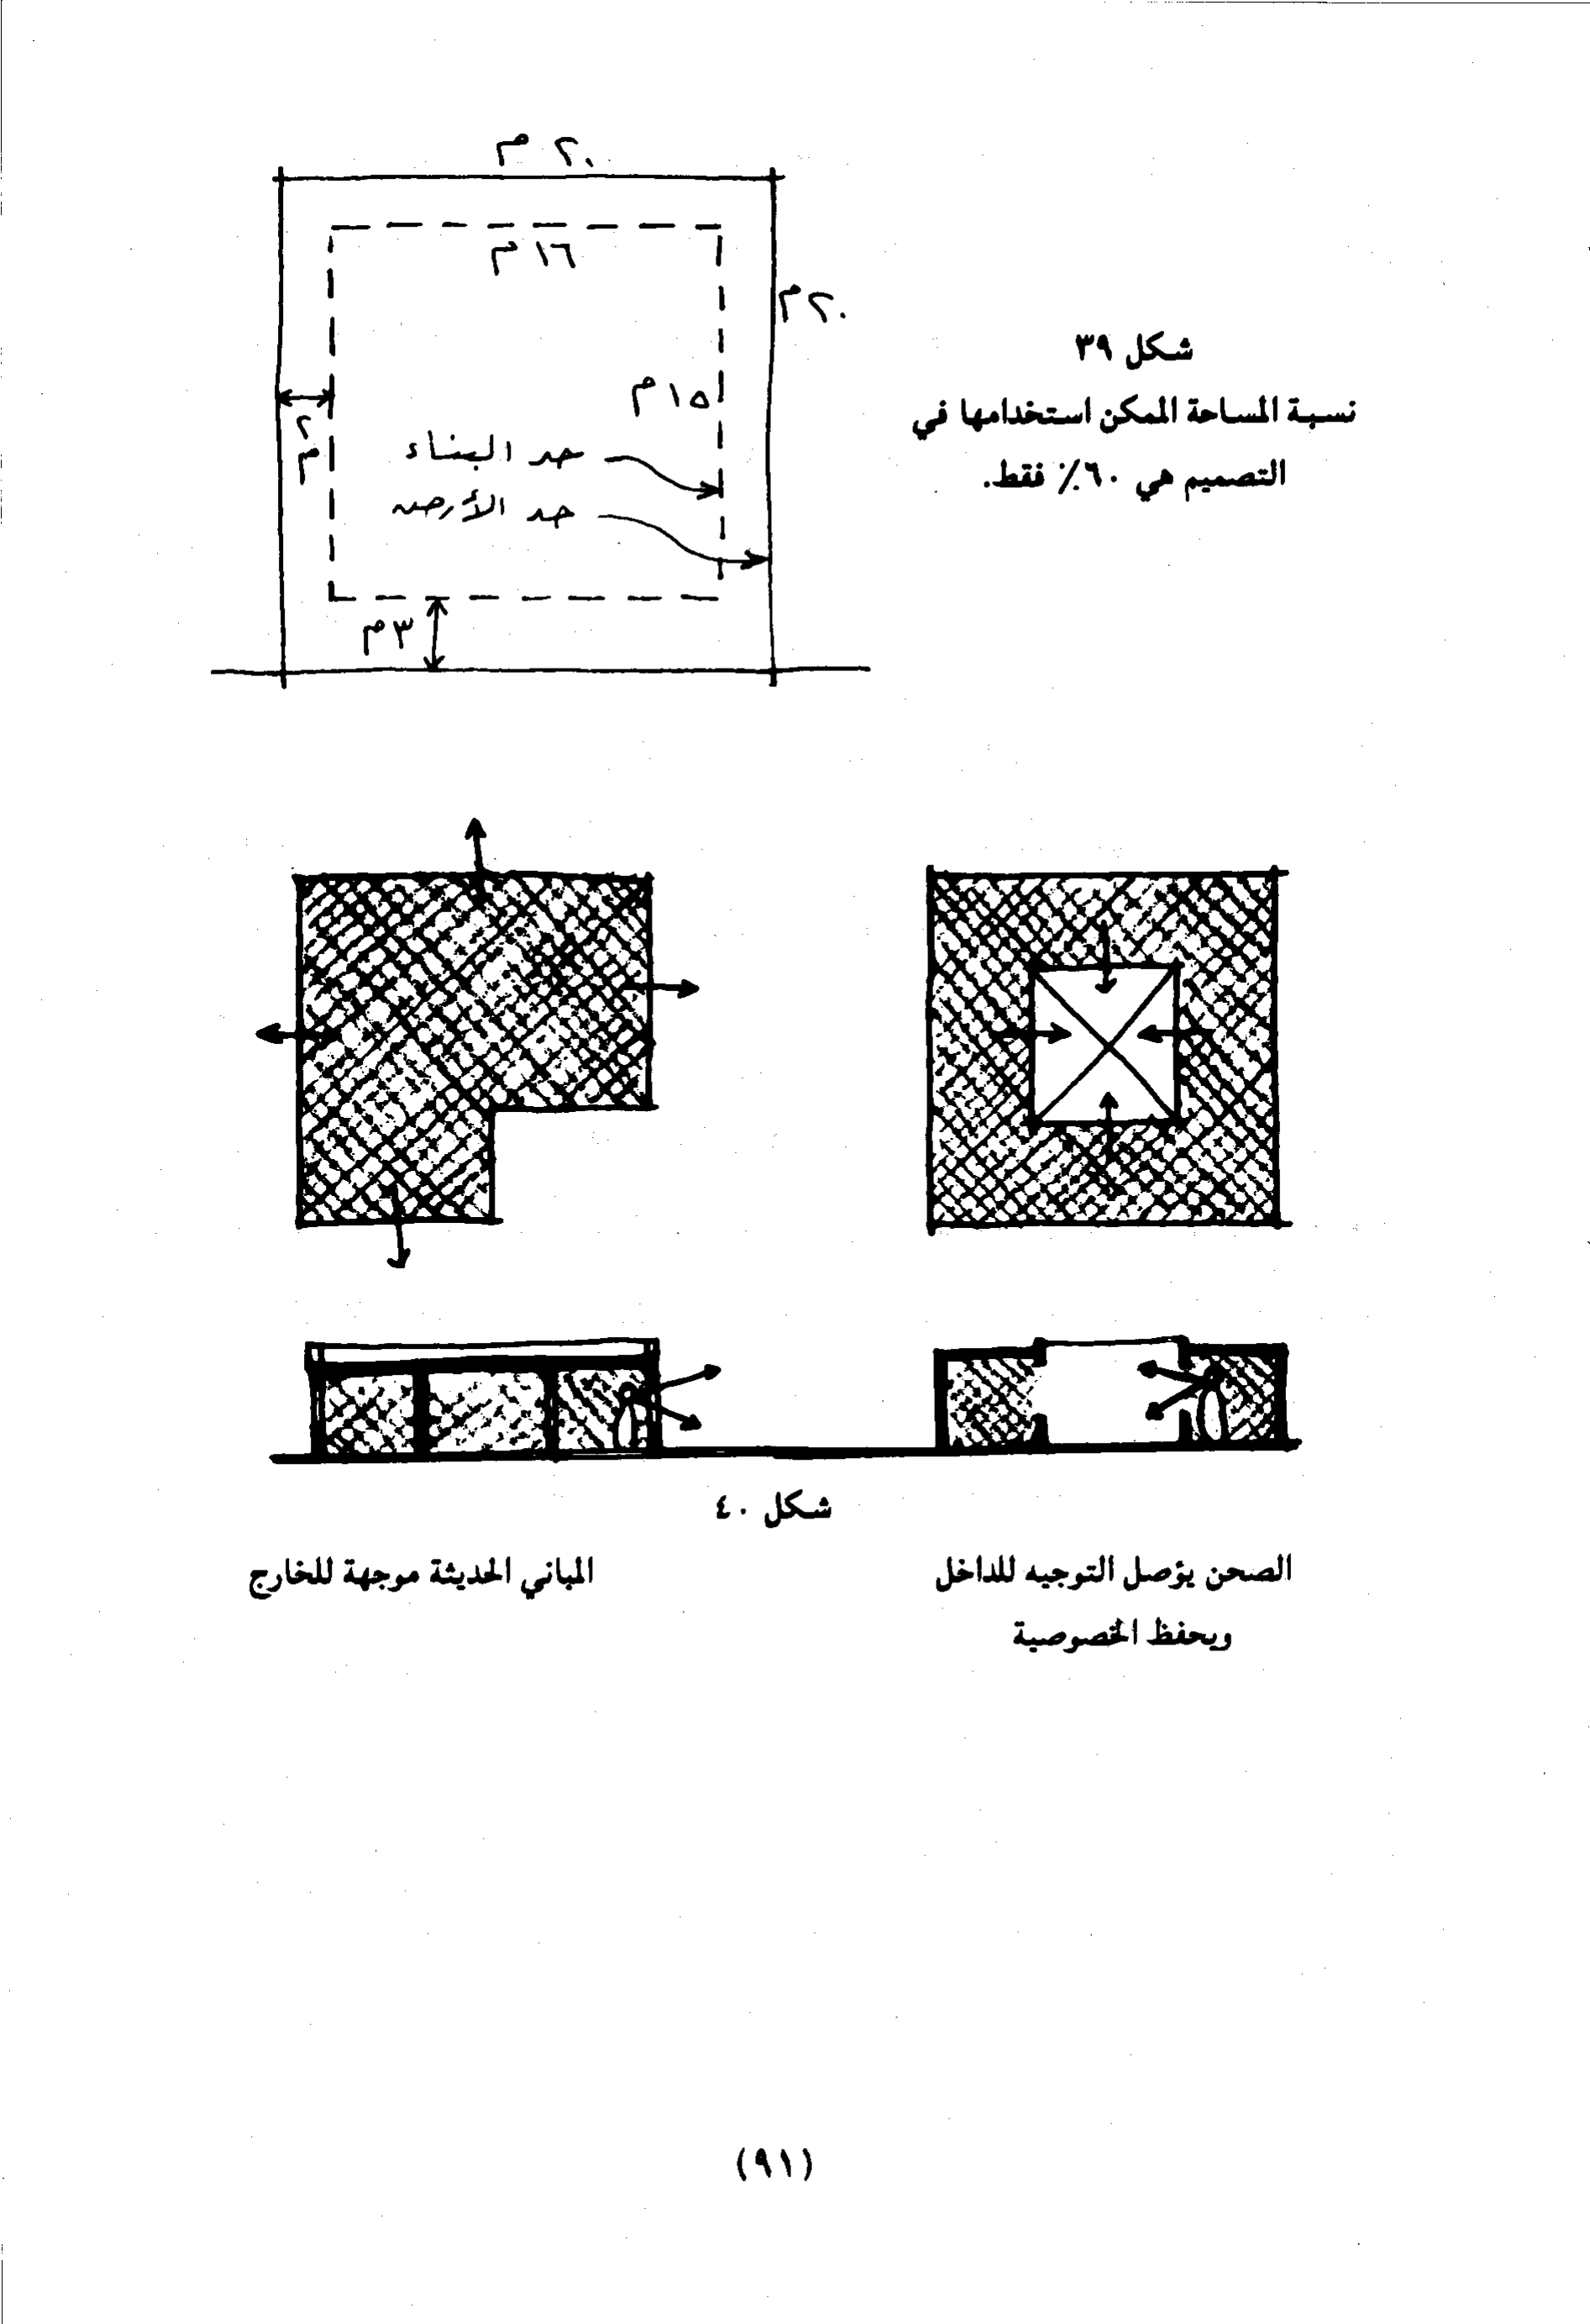 ٢٠ م
١٦ م
٢٠ م
١٥ م
٢ م
حد البناء
حد الأرض
٣ م
شكل ٣٩
نسبة المساحة الممكن استخدامها في
التصميم هي ٦٠٪ فقط.
شكل ٤٠
الصحن يؤصل التوجيه للداخل
ويحفظ الخصوصية
المباني الحديثة موجهة للخارج
(٩١)